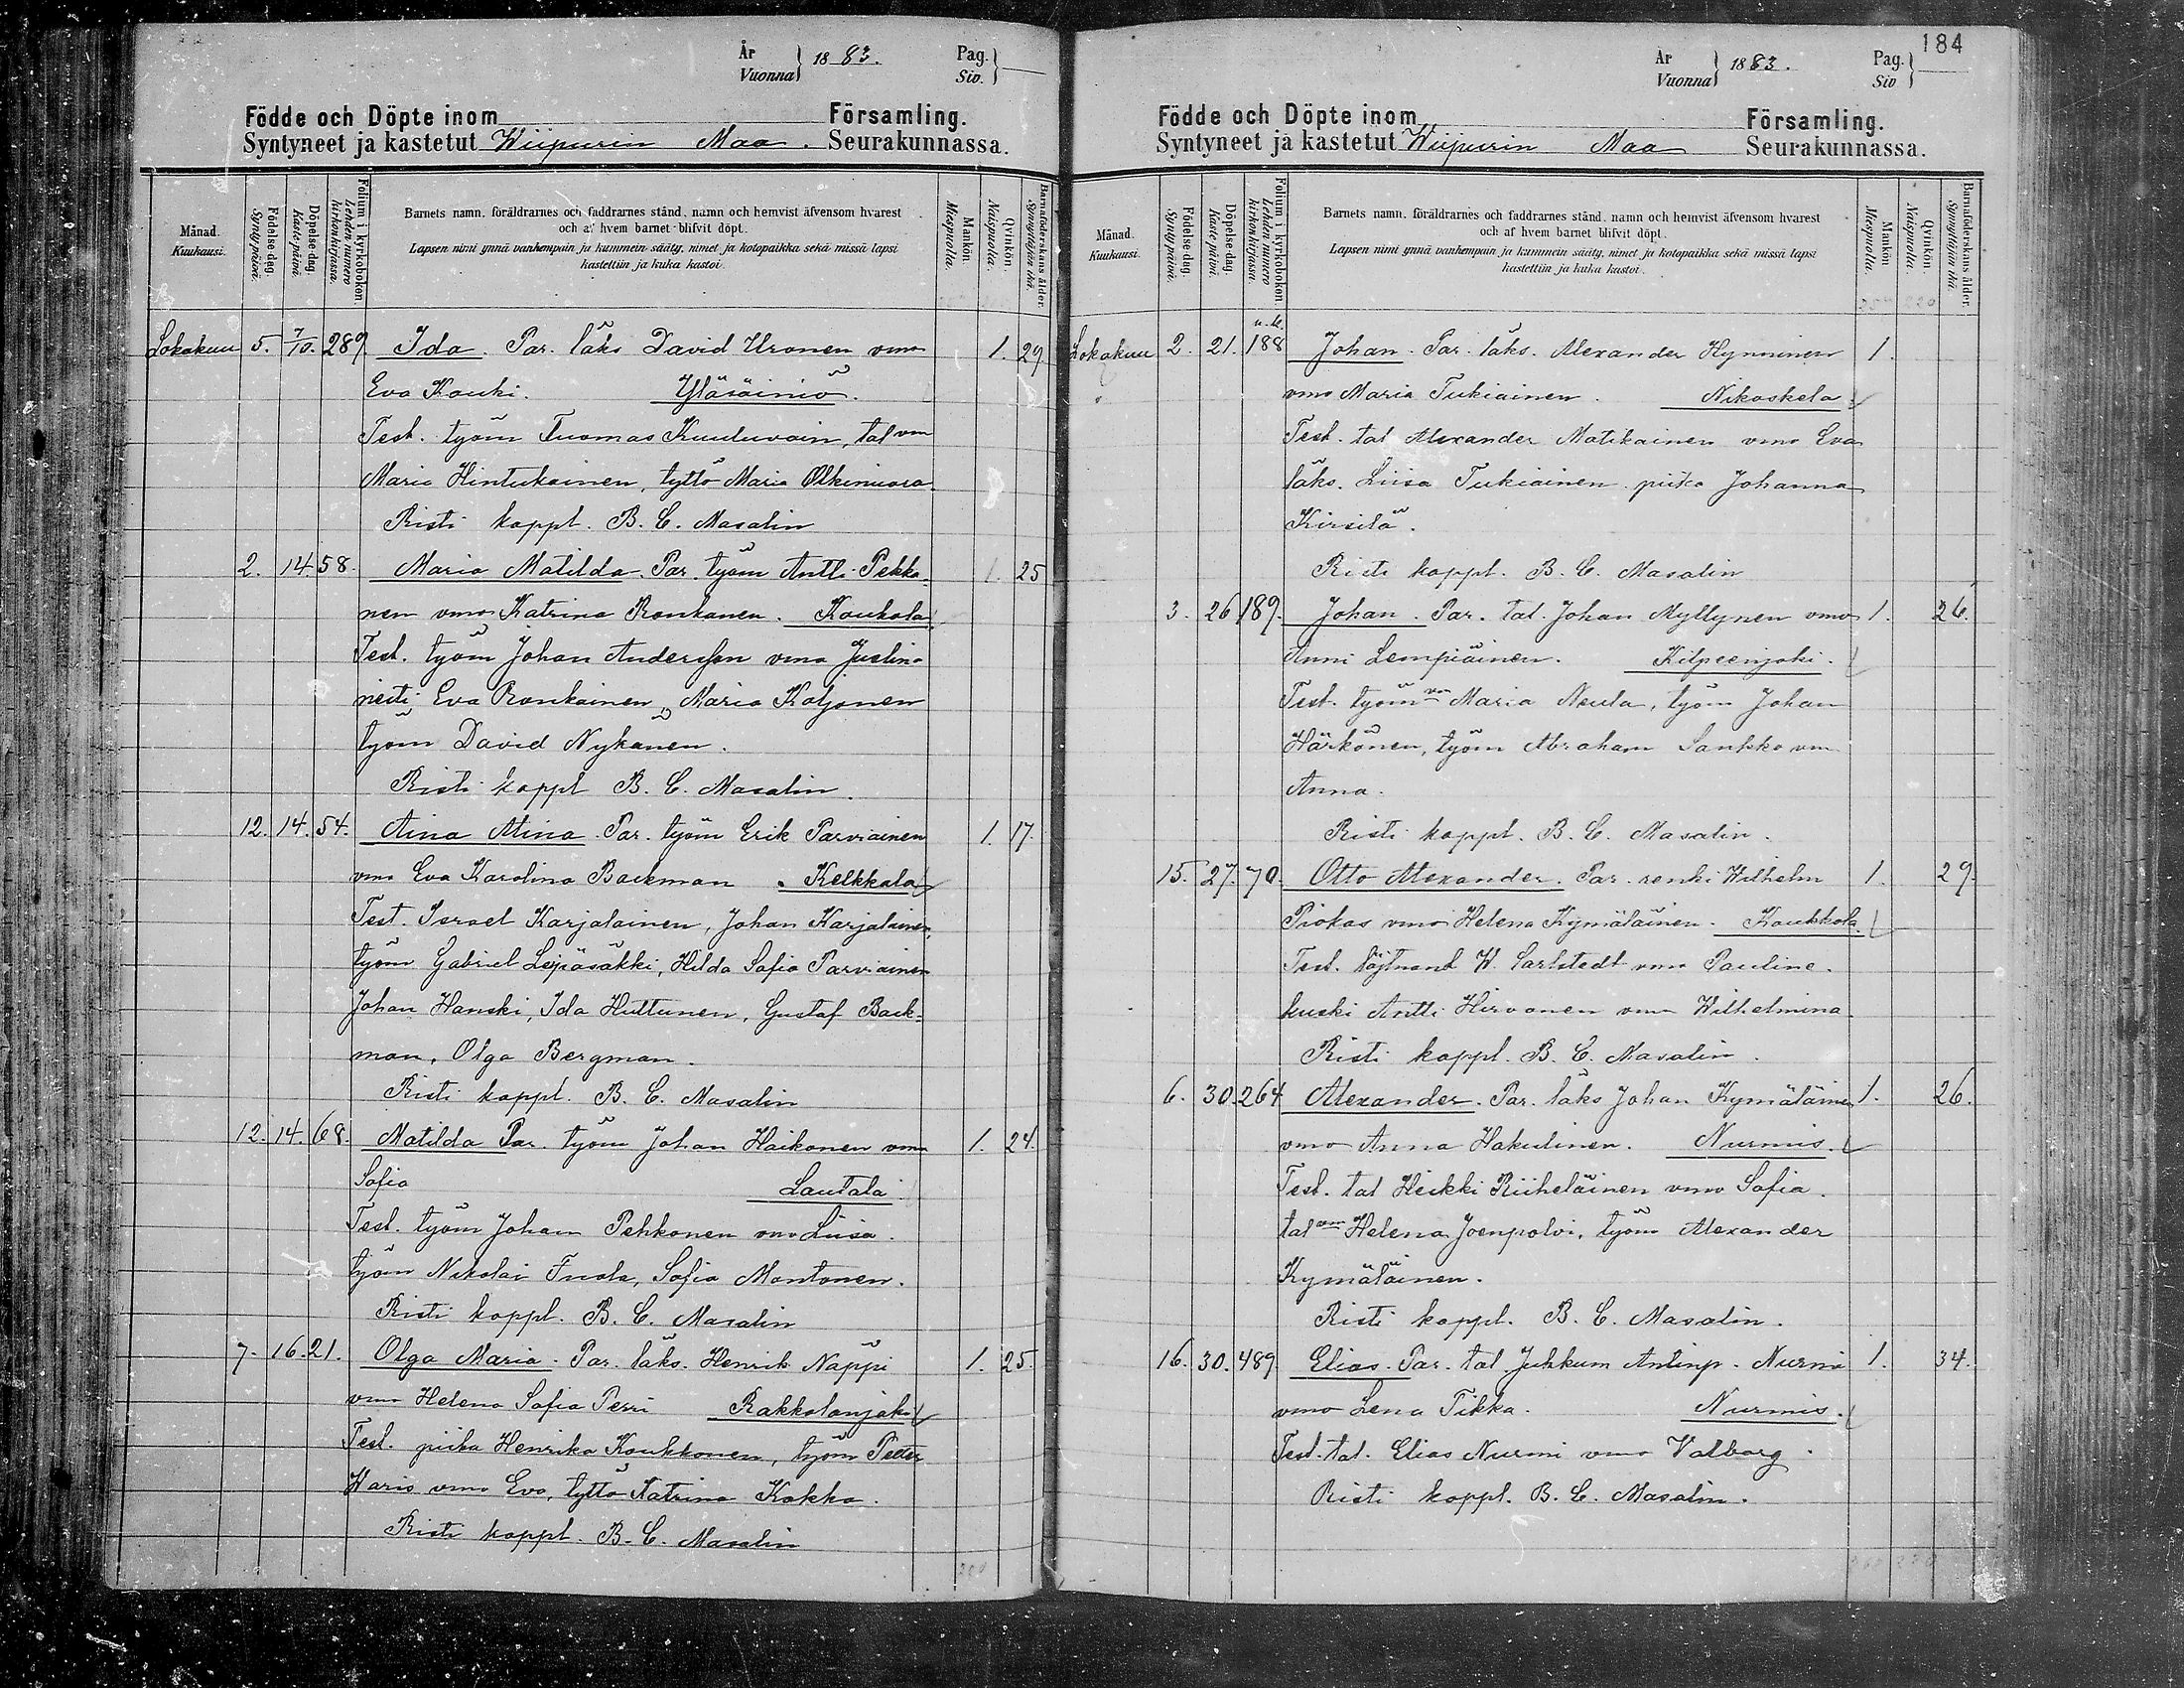 År
Vuonna } 1883.
Pag.
Siv. } —
Födde och Döpte inom Församling.
Syntyneet ja kastetut Wiipurin Maa. Seurakunnassa.
Månad.
Kuukausi.
Födelse-dag.
Synty-päivä.
Döpelse-dag.
Kaste-päivä.
Folium i kyrkoboken.
Lehden numero kirkonkirjassa.
Barnets namn, föräldrarnes och faddrarnes stånd, namn och hemvist äfvensom hvarest
och af hvem barnet blifvit döpt.
Lapsen nimi ynnä vanhempain ja kummein sääty, nimet ja kotopaikka sekä missä lapsi
kastettiin ja kuka kastoi.
Mankön.
Miespuolia.
Qvinkön.
Naispuolia.
Barnaföderskans ålder.
Synnyttäjän ikä.
Lokakuu 5. 7/10. 289. Ida. Par. läks David Uronen vmo 1. 29
Eva Kauki. Yläsäiniö.
Test. työm Tuomas Kuuluvain, tal vm
Maria Hintukainen, tyttö Maria Olkinuora.
Risti kappl. B. C. Masalin
2. 14. 58. Maria Matilda. Par. työm Antti Pekko- 1. 25
nen vmo Katrina Ronkanen. Koukola
Test. työm Johan Andersson vmo Justin-
neiti Eva Ronkainen, Maria Koljonen
työm David Nykänen.
Risti kappl B. C. Masalin.
12. 14. 54. Aina Mina. Par. työm Erik Parviainen 1. 17.
vmo Eva Karolina Backman. Kelkkala
Test. Israel Karjalainen, Johan Karjalainen,
työm Gabriel Leipäsäkki, Hilda Sofia Parviainen
Johan Hanski, Ida Huttunen, Gustaf Back-
man, Olga Bergman.
Risti kappl. B. C. Masalin
12. 14. 68. Matilda Par. työm Johan Haikonen vmo 1. 24.
Sofia Lautala
Test. työm Johan Pehkonen vmo Liisa.
työm Nikolai, Sofia Montonen.
Risti kappl. B. C. Masalin
7. 16. 21. Olga Maria. Par. läks. Henrik Nappi 1. 25.
vmo Helena Sofia Perri Rakkolanjoki
Test. piika Henrika Koukkonen, työm Petter
Haris vmo Eva, tyttö Katrina Kokko.
Risti kappl. B. C. Masalin
184
År
Vuonna } 1883.
Pag.
Siv } —
Födde och Döpte inom Församling.
Syntyneet ja kastetut Wiipurin Maa Seurakunnassa.
Månad.
Kuukausi.
Födelse-dag.
Synty-päivä.
Döpelse-dag.
Kaste-päivä.
Folium i kyrkoboken.
Lehden numero kirkonkirjassa.
Barnets namn, föräldrarnes och faddrarnes stånd, namn och hemvist äfvensom hvarest
och af hvem barnet blifvit döpt.
Lapsen nimi ynnä vanhempain ja kummein sääty, nimet ja kotopaikka sekä missä lapsi
kastettiin ja kuka kastoi.
Mankön
Miespuolia.
Qvinkön.
Naispuolia.
Barnaföderskans ålder.
Synnyttäjän ikä.
u.k.
Lokakuu 2. 21. 188 Johan. Par. läks. Alexander Hynninen 1.
vmo Maria Tukiainen. Nikoskela
Test. tal Alexander Matikainen vmo Eva
läks. Liisa Tukiainen piika Johanna
Kirsilä.
Risti kappl. B. C. Masalin
3. 26 189. Johan. Par. tal. Johan Myllynen vmo 1. 26.
Anni Lempiäinen. Kilpeenjoki.
Test. työm vm Maria Neula, työm Johan
Härkönen, työm Abraham Sankko vm
Anna.
Risti kappl. B. C. Masalin.
15. 27. 70. Otto Alexander. Par. renki Wilhelm 1. 29.
Piokas vmo Helena Kymäläinen. Koukkola.
Test. Löjtnant W. Carlstedt vmo Pauline.
kuski Antti Hirvonen vmo Wilhelmina
Risti kappl. B. C. Masalin.
6. 30. 264 Alexander. Par. läks Johan Kymäläinen 1. 26.
vmo Anna Hakulinen. Nurmis.
Test. tal Heikki Riiheläinen vmo Sofia.
tal vm Helena Joenpolvi, työm Alexander
Kymäläinen.
Risti kappl. B. C. Masalin.
16. 30. 489. Elias. Par. tal. Juhkum Antinp. Nurmi 1. 34.
vmo Lena Tikka. Nurmis.
Test. tal. Elias Nurmi vmo Valborg.
Risti kappl. B. C. Masalin.